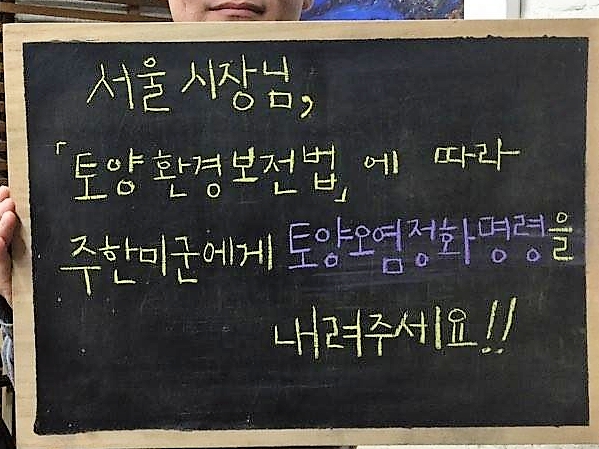 서울 시장님,
「토양환경보전법」에 따라
주한미군에게 토양오염정화명령을
내려주세요!!